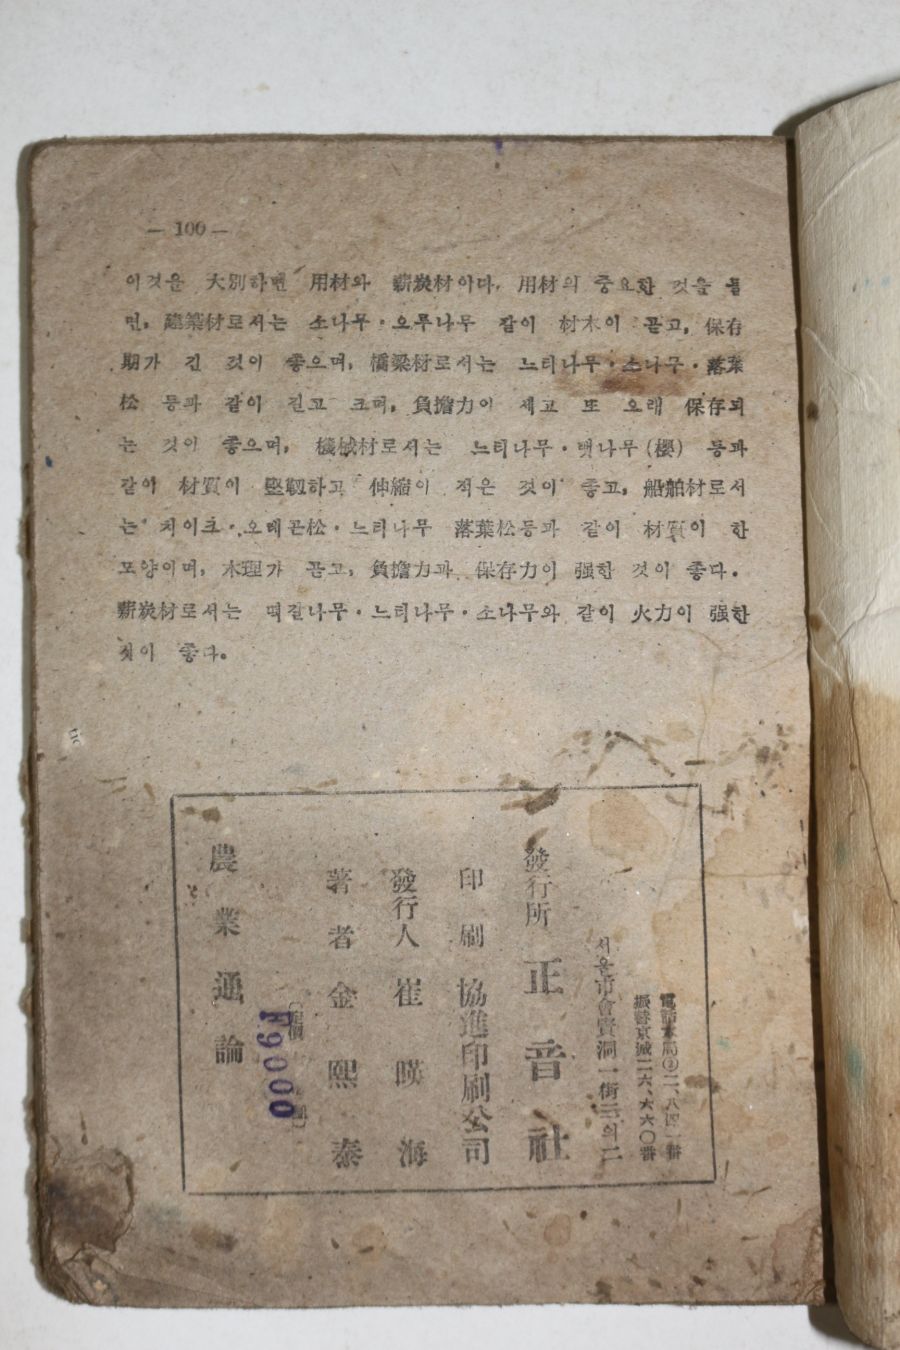 — 100 —
이것을 大別하면 用材와 薪炭材이다. 用材의 중요한 것을 들
면, 建築材로서는 소나무·오루나무 같이 材木이 곧고, 保存
期가 긴 것이 좋으며, 橋梁材로서는 느티나무·소나무·落葉
松 등과 같이 길고 크며, 負擔力이 세고 또 오래 保存되
는 것이 좋으며, 機械材로서는 느티나무·벗나무(櫻) 등과
같이 材質이 堅靭하고 伸縮이 적은 것이 좋고, 船舶材로서
는 치이크·오레곤松·느티나무 落葉松등과 같이 材質이 한
모양이며, 木理가 곧고, 負擔力과 保存力이 强한 것이 좋다.
薪炭材로서는 떡갈나무·느티나무·소나무와 같이 火力이 强한
것이 좋다.
農業通論
9000
著者 金熙泰
發行人 崔暎海
印刷 協進印刷公司
發行所 正音社
서울市會賢洞一街三의二
振替京城二六、六六〇番
電話本局②二、八四一番